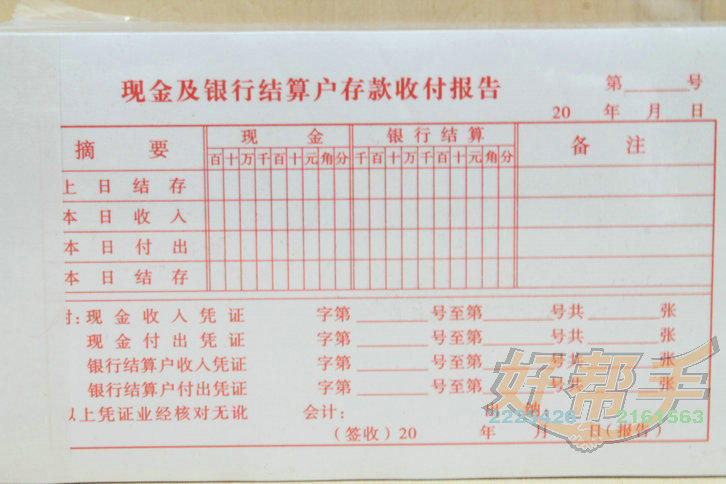 现金及银行结算户存款收付报告
第 号
20 年 月 日
摘 要 现 金 银行结算 备 注
百十万千百十元角分 千百十万千百十元角分
上日结存
本日收入
本日付出
本日结存
附：现金收入凭证 字第 号至第 号共 张
现金付出凭证 字第 号至第 号共 张
银行结算户收入凭证 字第 号至第 号共 张
银行结算户付出凭证 字第 号至第 号共 张
以上凭证业经核对无讹 会计： 出 纳
(签收) 20 年 月 日(报告)
好帮手
2221426 2161563